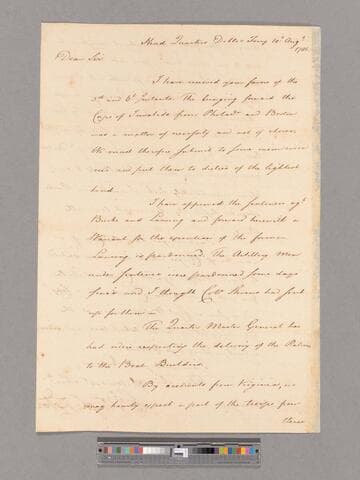 Head Quarters Dobbs Ferry 10th Augt
1781
Dear Sir
I have received your favor of the
3d and 6th Instants. The bringing forward the
Corps of Invalids from Philada and Boston
was a matter of necessity and not of choice.
We must therefore submit to some inconvenience
and put them to duties of the lightest
kind.
I have approved the sentences agt
Burke and Lansing and forward herewith a
Warrant for the execution of the former
Lansing is pardoned. The Artillery Men
under sentence were pardoned some days
since and I thought Colo Stevens had sent
up for them —
The Quarter Master General has
had orders respecting the delivery of the
to the Boat Builders.
By accounts from Virginia, we
may hourly expect a part of the troops from
thence